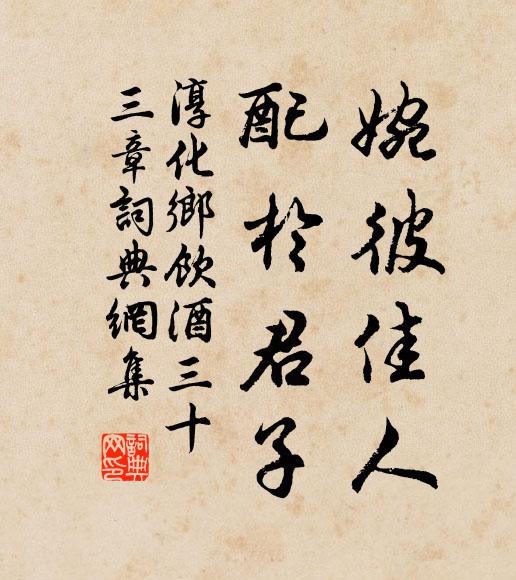 婉彼佳人
配於君子
淳化鄉飲酒三十
三章詞典網集
詞典
网印